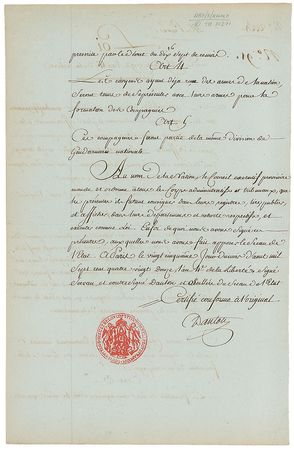 prescrite par le décret du dix Sept de ce mois.
Art 4.
Les citoyens ayant déja une des armes de
Seront tenus de se présenter avec leur arme pour la
formation des Compagnies
Art 5
Ces compagnies feront partie de la même division de
Gendarmerie nationale.
Au nom de la Nation, le Conseil exécutif provisoire
mande et ordonne à tous les Corps administratifs et tribunaux, que
les présentes ils fassent consigner dans leurs registres, lire, publier,
et afficher dans leurs départemens et ressorts respectifs, et
exécuter comme Loi. En foi de quoi nous avons signé ces
présentes, auxquelles nous avons fait apposer le Sceau de
l'Etat. à Paris le vingt cinquième Jour d'aout mil
Sept cent quatre vingt douze, l'an 4e de la liberté Signé
Servan et contresigné Danton et Scellées du Sceau de l'Etat
Certifié conforme à l'original
Danton